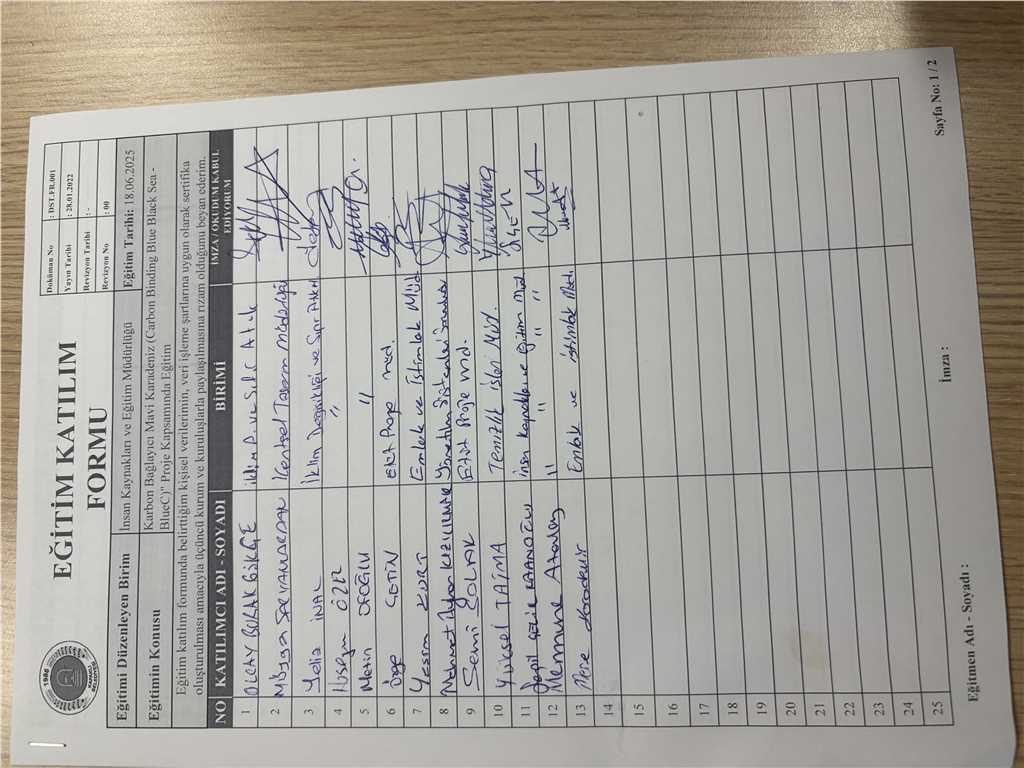 1986
KARTAL
BELEDİYESİ
EĞİTİM KATILIM
FORMU
Doküman No : DST.FR.001
Yayın Tarihi : 28.01.2022
Revizyon Tarihi : -
Revizyon No : 00
Eğitimi Düzenleyen Birim İnsan Kaynakları ve Eğitim Müdürlüğü Eğitim Tarihi: 18.06.2025
Eğitimin Konusu Karbon Bağlayıcı Mavi Karadeniz (Carbon Binding Blue Black Sea -
BlueC)" Proje Kapsamında Eğitim
Eğitim katılım formunda belirttiğim kişisel verilerimin, veri işleme şartlarına uygun olarak sertifika
oluşturulması amacıyla üçüncü kurum ve kuruluşlarla paylaşılmasına rızam olduğumu beyan ederim.
NO KATILIMCI ADI - SOYADI BİRİMİ İMZA / OKUDUM KABUL
EDİYORUM
1 OLCAY BURAK GÖKÇE
2 Kentsel Tasarım Müdürlüğü
3 Yeliz İNAL İklim Değişikliği ve Sıfır Atık
4 Hüseyin ÖZER "
5 Metin "
6 Özge ÇETİN Etüt Proje Müd.
7 Yasin KURT Emlak ve İstimlak Müd
8 Mehmet Yönetim Sistemleri
9 Semi ÇOLAK Etüt Proje Müd.
10 Yüksel Temizlik İşleri Müd.
11 İnsan Kaynakları ve Eğitim Müd.
12 Memnune " " " "
13 Emlak ve İstimlak Müd.
14
15
16
17
18
19
20
21
22
23
24
25
Eğitmen Adı - Soyadı : İmza :
Sayfa No: 1 / 2